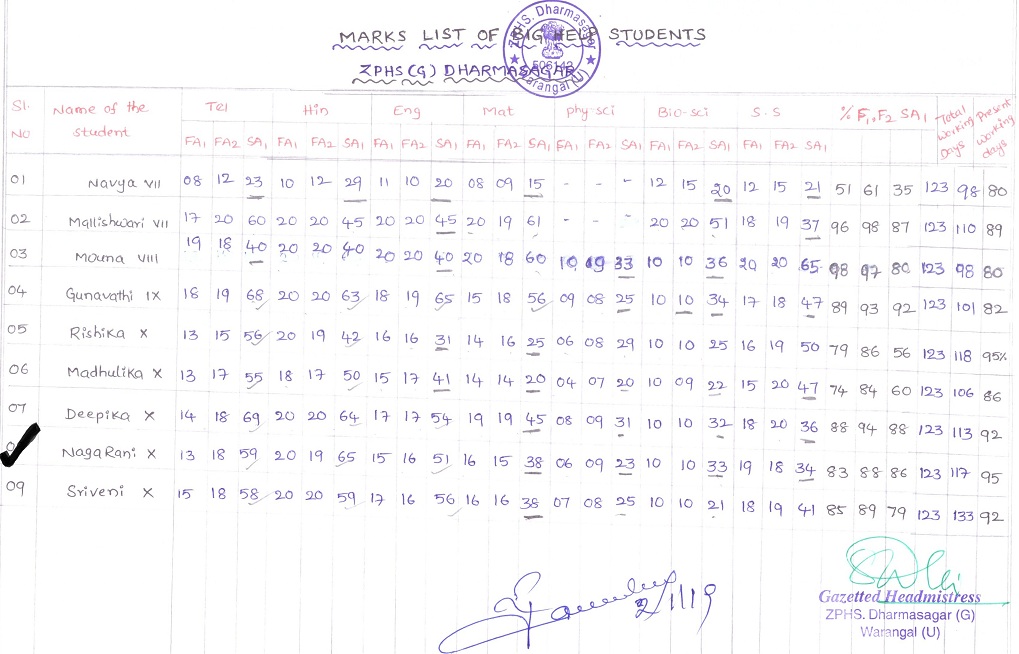 MARKS LIST OF BIG HELP STUDENTS
ZPHS (G) DHARMASAGAR
ZPHS. Dharmasagar
506142
Warangal (U)
Sl. No Name of the student Tel Hin Eng Mat phy-sci Bio-sci S.S % F1, F2 SA1 Total Working Days Present working days
FA1 FA2 SA1 FA1 FA2 SA1 FA1 FA2 SA1 FA1 FA2 SA1 FA1 FA2 SA1 FA1 FA2 SA1 FA1 FA2 SA1
01 Navya VII 08 12 23 10 12 29 11 10 20 08 09 15 - - - 12 15 20 12 15 21 51 61 35 123 98 80
02 Mallishwari VII 17 20 60 20 20 45 20 20 45 20 19 61 - - - 20 20 51 18 19 37 96 98 87 123 110 89
03 Mouna VIII 19 18 40 20 20 40 20 20 40 20 18 60 10 09 33 10 10 36 20 20 65 98 97 80 123 98 80
04 Gunavathi IX 18 19 68 20 20 63 18 19 65 15 18 56 09 08 25 10 10 34 17 18 47 89 93 92 123 101 82
05 Rishika X 13 15 56 20 19 42 16 16 31 14 16 25 06 08 29 10 10 25 16 19 50 79 86 56 123 118 95%
06 Madhulika X 13 17 55 18 17 50 15 17 41 14 14 20 04 07 20 10 09 22 15 20 47 74 84 60 123 106 86
07 Deepika X 14 18 69 20 20 64 17 17 54 19 19 45 08 09 31 10 10 32 18 20 36 88 94 88 123 113 92
NagaRani X 13 18 59 20 19 65 15 16 51 16 15 38 06 09 23 10 10 33 19 18 34 83 88 86 123 117 95
09 Sriveni X 15 18 58 20 20 59 17 16 56 16 16 38 07 08 25 10 10 21 18 19 41 85 89 79 123 133 92
2/1/19
Gazetted Headmistress
ZPHS. Dharmasagar (G)
Warangal (U)